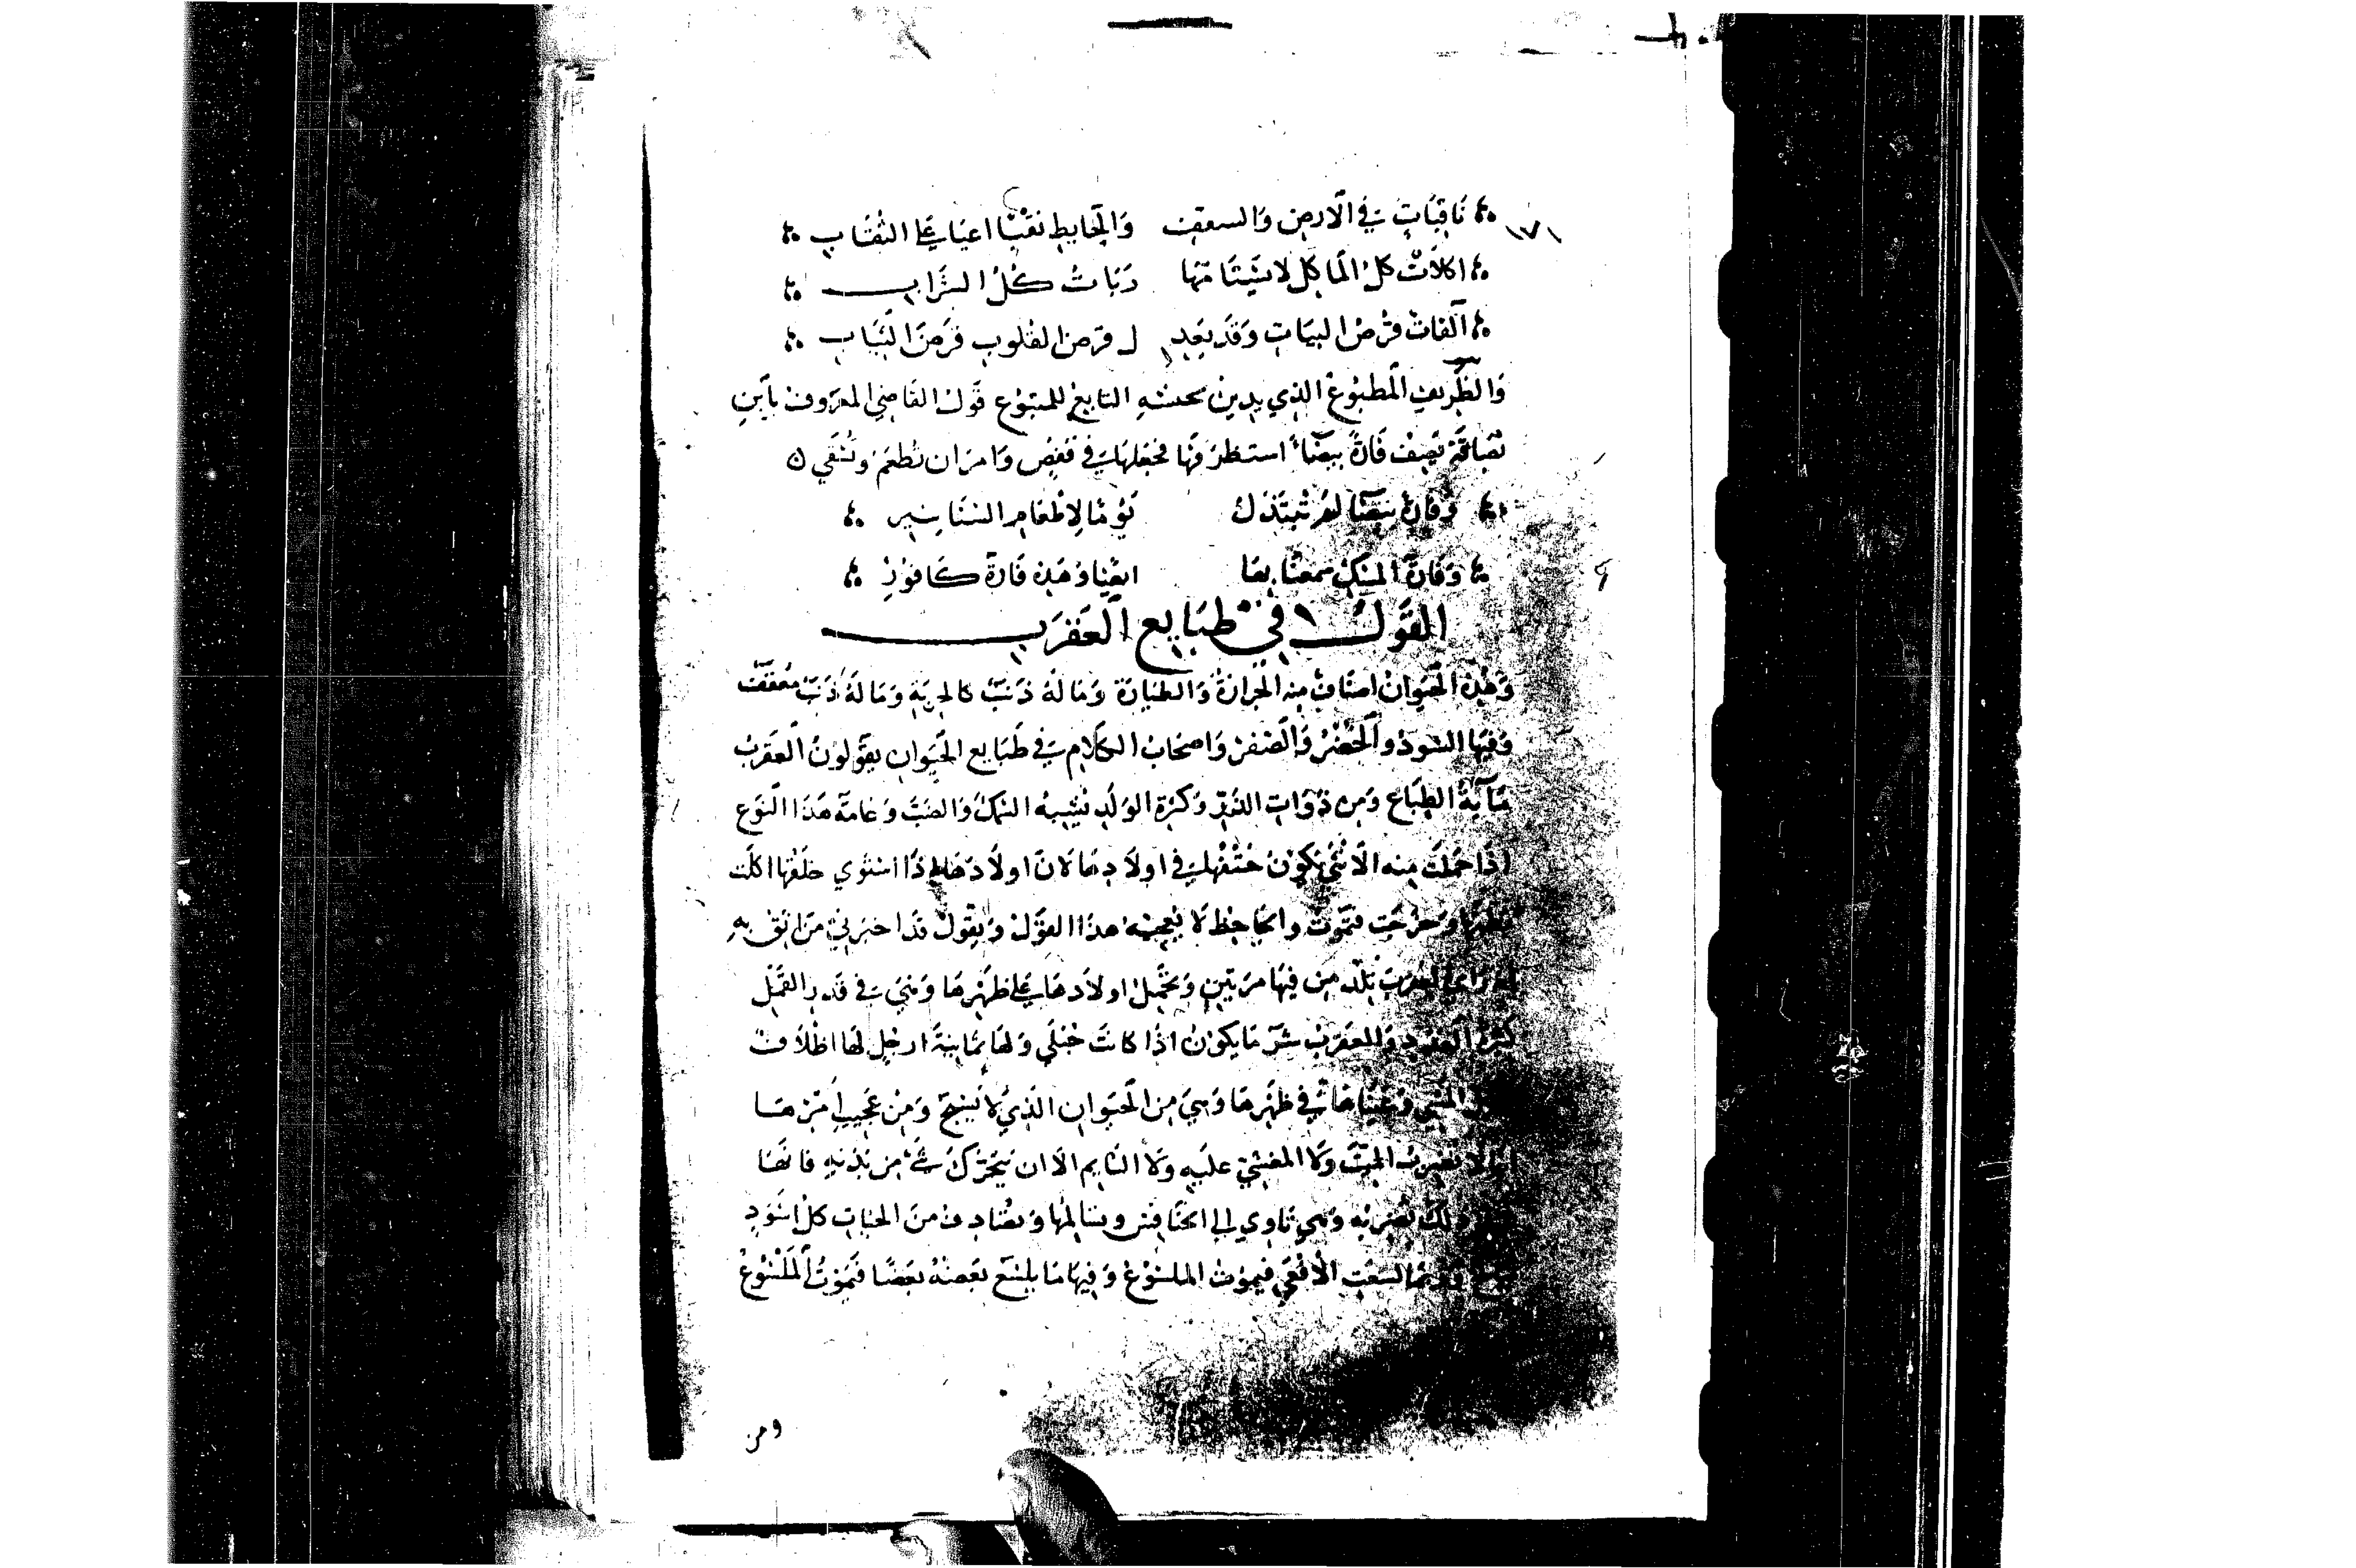 ١٧١
ناقبات في الارض والسقف والحايط نقبا اعيا على النقاب
اكلات كل الماكل لا تسامها دبات كل الشراب
آلفات قرض الثياب وقد يعد ل قرض القلوب قرض الثياب
والظريف المطبوع الذي يدين بحسنه التابع للمتبوع قول القاضي المعروف بابن
يصف فارة بيضاء استظرفها فجعلها في قفص وامر ان تطعم وتسقي
وفارة بيضا لم تبتذل يوما لاطعام السنانير
وفارة المسك سمعنا بها وهذه فارة كافور
القول في طبايع العقرب
وهذا الحيوان اصناف منه الجرارة والطيارة وما له ذنب كالحربة وما له ذنب معقف
وفيها السود والخضر والصفر واصحاب الكلام في طبايع الحيوان يقولون العقرب
مآية الطباع ومن ذوات الذر وكثرة الولد تشبه السمك والضب وعامة هذا النوع
اذا حملت منه الانثي يكون حتفها في اولادها لان اولادها اذا استوي خلقها اكلت
بطنها وخرجت فتموت والجاحظ لا يعجبه هذا القول ويقول قد اخبرني من اثق به
انه راي العقرب تلد من فيها مرتين وتحمل اولادها على ظهرها وهي في قدر القمل
كثيرة العدد والعقرب شر ما يكون اذا كانت حبلي ولها ثمانية ارجل لها اظلاف
وعيناها في ظهرها وهي من الحيوان الذي لا يسبح ومن عجيب امرها
انها لا تضرب الميت ولا المغشي عليه ولا النايم الا ان يتحرك شيء من بدنه فانها
ذلك تضربه وهي تاوي الي الخنافس وتسالمها وتصادق من الحيات كل اسود
وربما لسعت الافعي فيموت الملسوع وفيها ما يلسع بعضه بعضا فيموت الملسوع
ومن